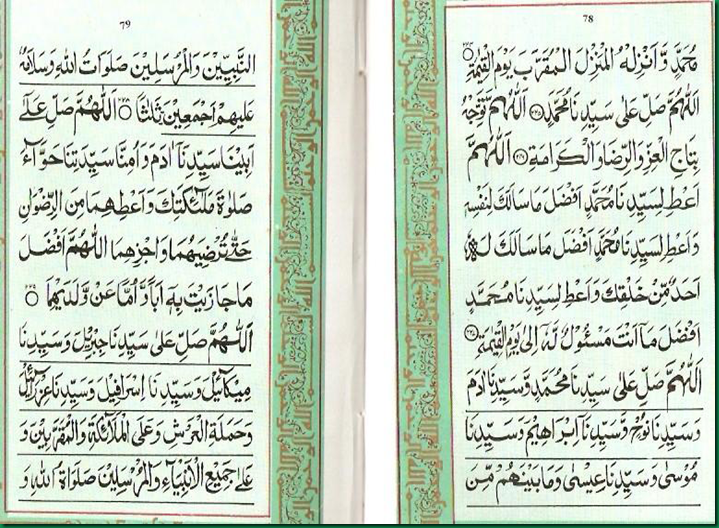 78
مُحَمَّدٍ وَّاَنْزِلْهُ الْمَنْزِلَ الْمُقَرَّبَ يَوْمَ الْقِيٰمَةِ
اَللّٰهُمَّ صَلِّ عَلٰى سَيِّدِنَا مُحَمَّدٍ اَللّٰهُمَّ تَوِّجْهُ
بِتَاجِ الْعِزِّ وَالرِّضَا وَالْكَرَامَةِ اَللّٰهُمَّ
اَعْطِ لِسَيِّدِنَا مُحَمَّدٍ اَفْضَلَ مَا سَاَلَكَ لِنَفْسِهٖ
وَاَعْطِ لِسَيِّدِنَا مُحَمَّدٍ اَفْضَلَ مَا سَاَلَكَ لَهٗ
اَحَدٌ مِّنْ خَلْقِكَ وَاَعْطِ لِسَيِّدِنَا مُحَمَّدٍ
اَفْضَلَ مَا اَنْتَ مَسْئُوْلٌ لَّهٗ اِلٰى يَوْمِ الْقِيٰمَةِ
اَللّٰهُمَّ صَلِّ عَلٰى سَيِّدِنَا مُحَمَّدٍ وَّسَيِّدِنَا اٰدَمَ
وَسَيِّدِنَا نُوْحٍ وَّسَيِّدِنَا اِبْرَاهِيْمَ وَسَيِّدِنَا
مُوْسٰى وَسَيِّدِنَا عِيْسٰى وَمَا بَيْنَهُمْ مِّنَ
79
النَّبِيّٖنَ وَالْمُرْسَلِيْنَ صَلَوَاتُ اللّٰهِ وَسَلَامُهٗ
عَلَيْهِمْ اَجْمَعِيْنَ ثَلٰثًا اَللّٰهُمَّ صَلِّ عَلٰٓى
اَبِيْنَا سَيِّدِنَا اٰدَمَ وَاُمِّنَا سَيِّدَتِنَا حَوَّآءَ
صَلٰوةَ مَلٰٓئِكَتِكَ وَاَعْطِهِمَا مِنَ الرِّضْوَانِ
حَتّٰى تُرْضِيَهُمَا وَاجْزِهِمَا اَللّٰهُمَّ اَفْضَلَ
مَا جَازَيْتَ بِهٖٓ اَبًا وَّاُمًّا عَنْ وَّلَدَيْهِمَا
اَللّٰهُمَّ صَلِّ عَلٰى سَيِّدِنَا جِبْرِيْلَ وَسَيِّدِنَا
مِيْكَائِيْلَ وَسَيِّدِنَا اِسْرَافِيْلَ وَسَيِّدِنَا عِزْرَائِيْلَ
وَحَمَلَةِ الْعَرْشِ وَعَلَى الْمَلَآئِكَةِ وَالْمُقَرَّبِيْنَ وَ
عَلٰى جَمِيْعِ الْاَنْبِيَآءِ وَالْمُرْسَلِيْنَ صَلَوَاةُ اللّٰهِ وَ